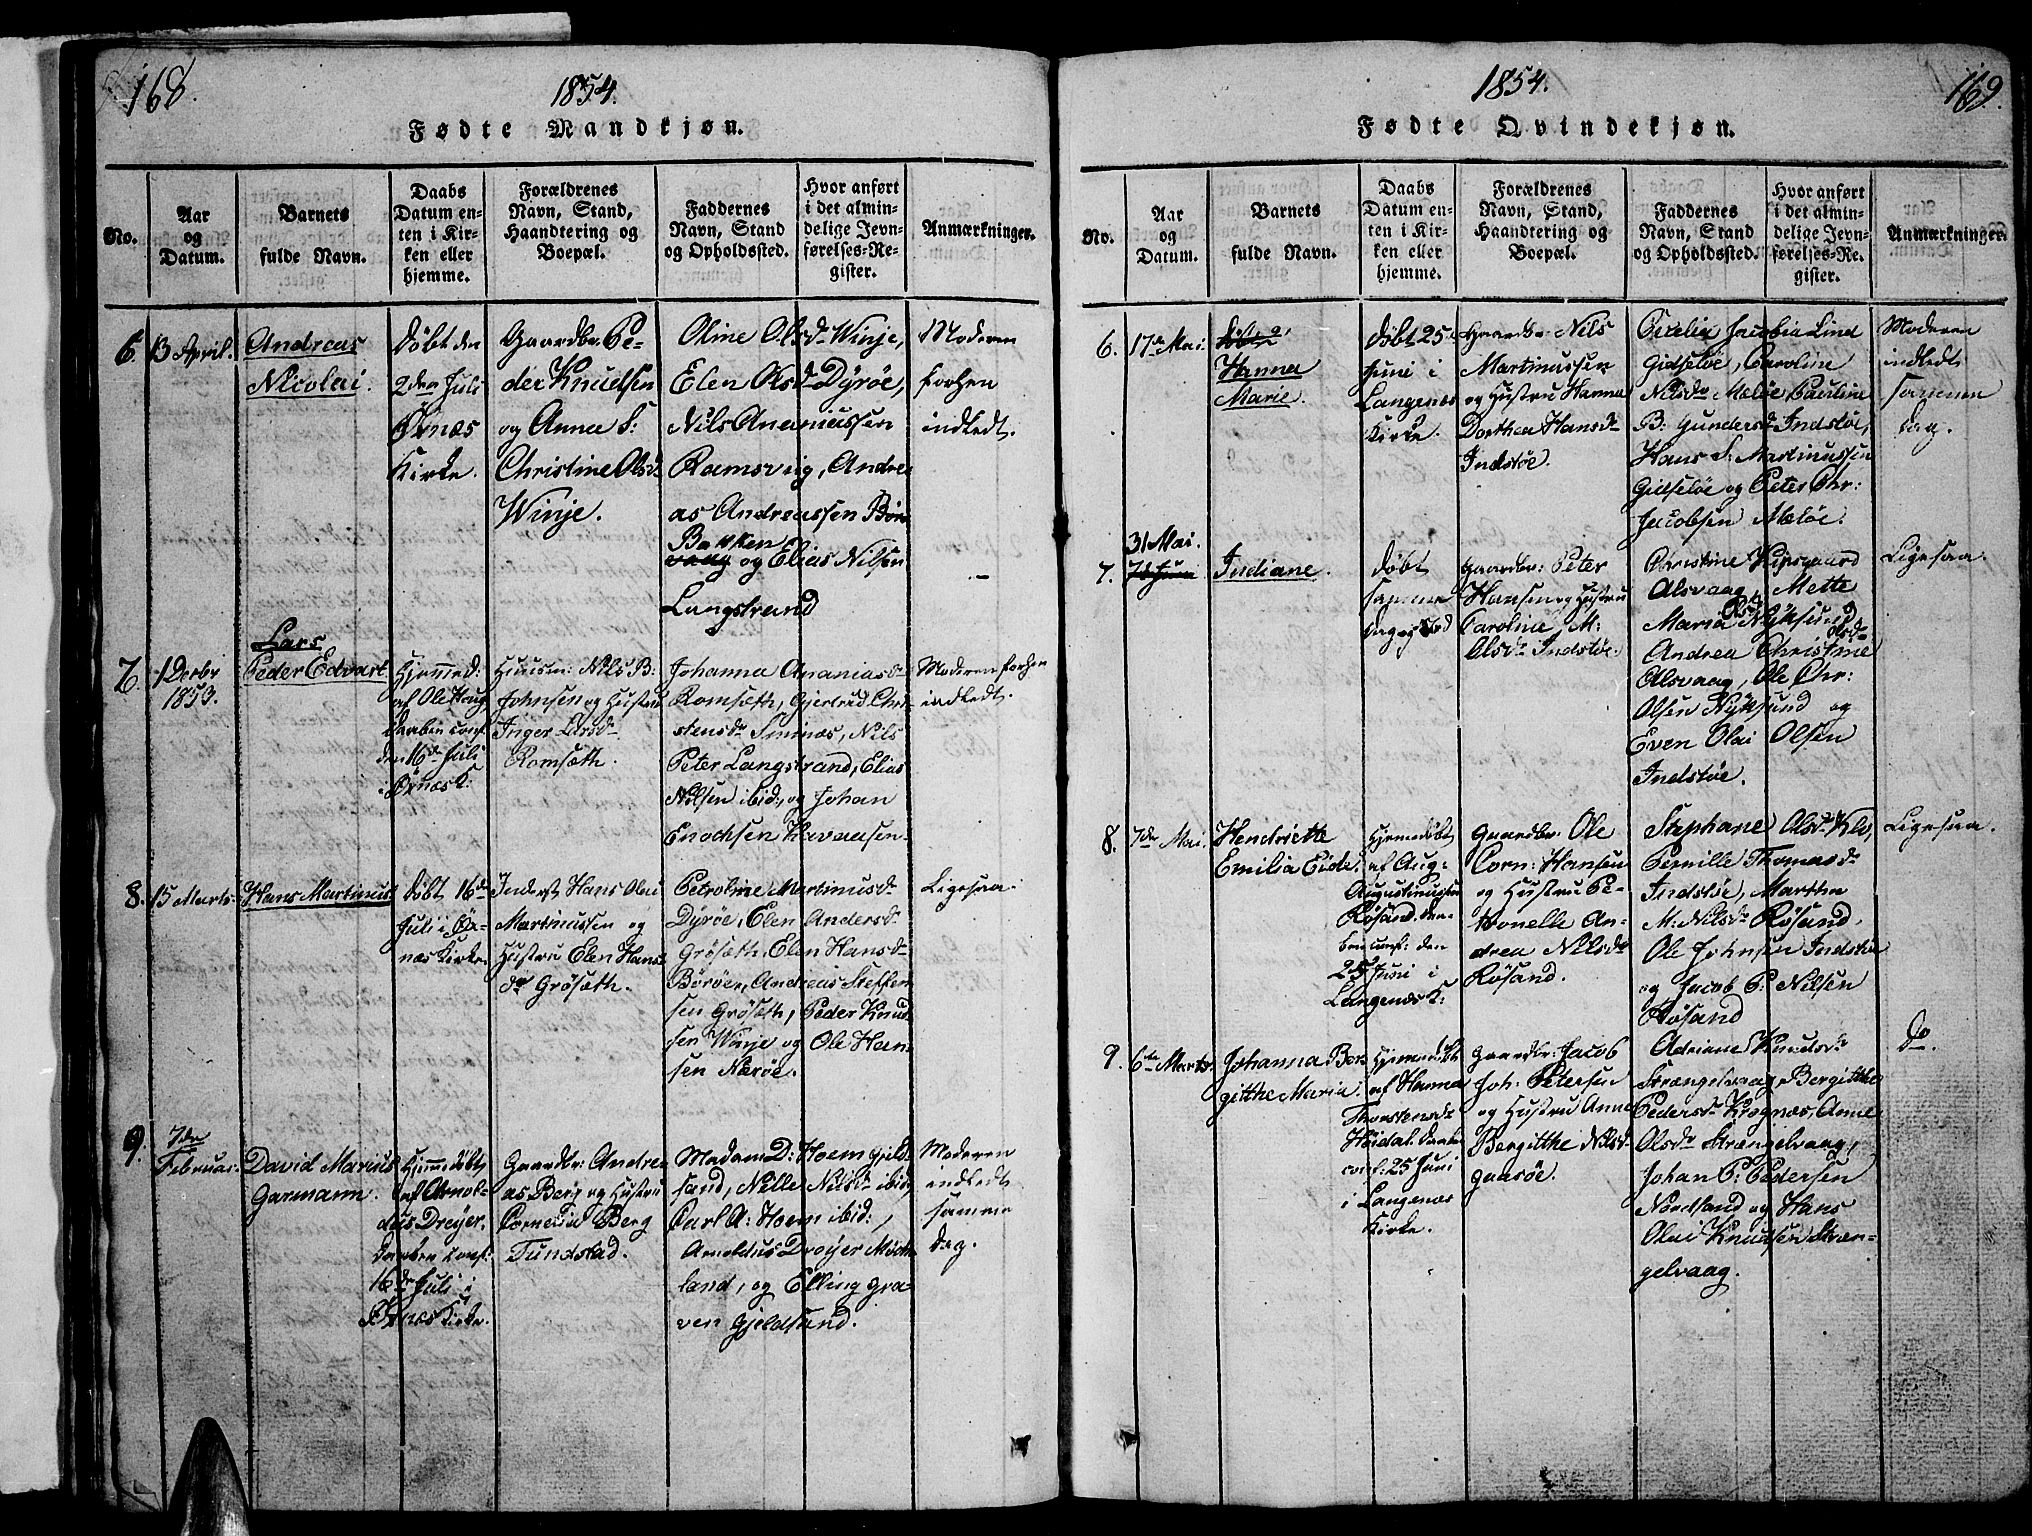 168.
1854.
Fødte Mandkjøn.
No.
Aar
og
Datum.
Barnets
fulde Navn.
Daabs
Datum en-
ten i Kir-
ken eller
hjemme.
Forældrenes
Navn, Stand,
Haandtering og
Boepæl.
Faddernes
Navn, Stand
og Opholdssted.
Hvor anført
i det almin-
delige Jevn-
førelses-Re-
gister.
Anmærkninger.
6.
13 April.
Andreas
Nicolai.
Døbt den
2den Juli
Øxnæs
Kirke.
Gaardbr: Pe-
der Knudsen
og Anna S:
Christine Olsd
Winje.
Oline Olsd Winje,
Elen Olsd Dyrøe,
Nils Ananiassen
Ramsvig, Andre-
as Andreassen Børø
Bakken
og Elias Nilsen
Langstrand
Moderen
forhen
indledt.
7.
1 Decbr
1853.
Lars
Peder Edvart
Hjemmed:
af Ole Haug
Daaben conf.
den 16de Juli
i Øxnæs K.
Huusm: Nils B:
Johnsen og Hustru
Inger Larsd
Romsæth.
Johanna Ananiasd
Romsæth, Gjertrud Chri-
stensd Sminæs, Nils
Peter Langstrand, Elias
Nilsen ibid:, og Johan
Enochsen
Moderen forhen
indledt.
8.
15 Marts.
Hans Martinus
Døbt 16de
Juli i Øx-
næs Kirke.
Inderst Hans Olai
Martinussen og
Hustru Elen Hans-
dr Grøsæth.
Petroline Martinusd
Dyrøe, Elen Andersd
Grøsæth, Elen Hansd
Børøen, Andreas Steffen-
sen Grøsæth, Peder Knud-
sen Winje og Ole Han-
sen Nærøe.
Ligesaa.
9.
7de
Februar:
David Marius
Garmann.
Hjemmedøbt
af Arnol-
dus Dreyer.
Daaben conf.
16de Juli i
Øxnæs Kirke.
Gaardbr: Andre-
as Berg og Hustru
Cornelia Berg
Tundstad.
Madam D: Hoem Gjeld-
sand, Nille Nilsd ibid,
Carl A: Hoem ibid:,
Arnoldus Dreyer Mæh-
land, og Elling Gra-
ven Gjeldsand.
Moderen
indledt
samme
Dag.
1854.
169.
Fødte Qvindekjøn.
No.
Aar
og
Datum.
Barnets
fulde Navn.
Daabs
Datum en-
ten i Kir-
ken eller
hjemme.
Forældrenes
Navn, Stand,
Haandtering og
Boepæl.
Faddernes
Navn, Stand
og Opholdssted.
Hvor anført
i det almin-
delige Jevn-
førelses-Re-
gister.
Anmærkninger.
6.
17de Mai.
Hanna
Marie.
Døbt 25
Juni i
Langenæs
Kirke.
Gaardbr: Nils
Martinussen
og Hustru Hanna
Dorthea Hansd
Indstøe.
Cecelia Jacobia Lind
Gidsløe, Caroline
Nilsd Mæløe, Pauline
B: Gundersd Indstøe,
Hans S: Martinussen
Gidsløe og Peter Chr:
Jacobsen Mæløe.
Moderen
indledt
samme
Dag.
7.
31 Mai.
Indiane.
Døbt
samme
Dag og Sted
Gaardbr: Peter
Hansen og Hustru
Caroline M:
Olsd Indstøe.
Christine Kipsgaard
Alsvaag, Mette
Maria Olsd Nyksund
Andrea Christine Olsd
Alsvaag, Ole Chr:
Olsen Nyksund og
Even Olai Olsen
Indstøe.
Ligesaa.
8.
7de Mai.
Hendriette
Emilia Eide.
Hjemmedøbt
af Aug:
Augustinussen
Røsand. Daa-
ben conf: den
25 Juni i
Langenæs K:
Gaardbr: Ole
Corn: Hansen
og Hustru Pe-
tronelle An-
drea Nilsd
Røsand.
Stephane Olsd Klo,
Pernille Thomasd
Indstøe, Martha
M: Nilsd Røsand,
Ole Johnsen Indstøe
og Jacob P: Nilsen
Røsand
Ligesaa.
9.
6te Marts.
Johanna Ber-
gitthe Maria.
Hjemmedøbt
af Hanna
Thorstensd
Høidal. Daaben
conf: 25 Juni
i Langenæs
Kirke.
Gaardbr: Jacob
Joh: Petersen
og Hustru Anne
Bergitthe Nilsd
Gaasøe.
Adriane Knudsd
Strængelvaag, Bergitthe
Pedersd Krognæs, Anne
Olsd Strængelvaag,
Johan P: Pedersen
Nordsand og Hans
Olai Knudsen Stræn-
gelvaag.
Do.